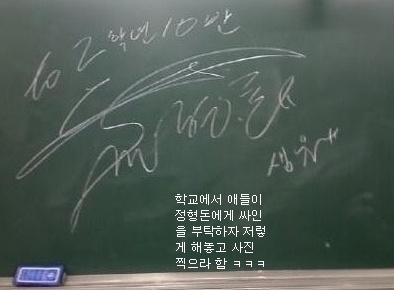 to 2학년 10반
학교에서 애들이
정형돈에게 싸인
을 부탁하자 저렇
게 해놓고 사진
찍으라 함 ㅋㅋㅋ